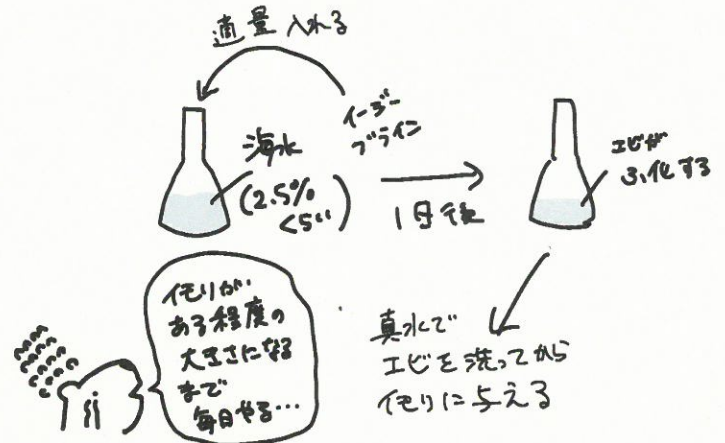 適量 入れる
イージー
ブライン
海水
(2.5%
くらい)
1日後
エビが
ふ化する
真水で
エビを洗ってから
イモリに与える
イモリが
ある程度の
大きさになる
まで
毎日やる…